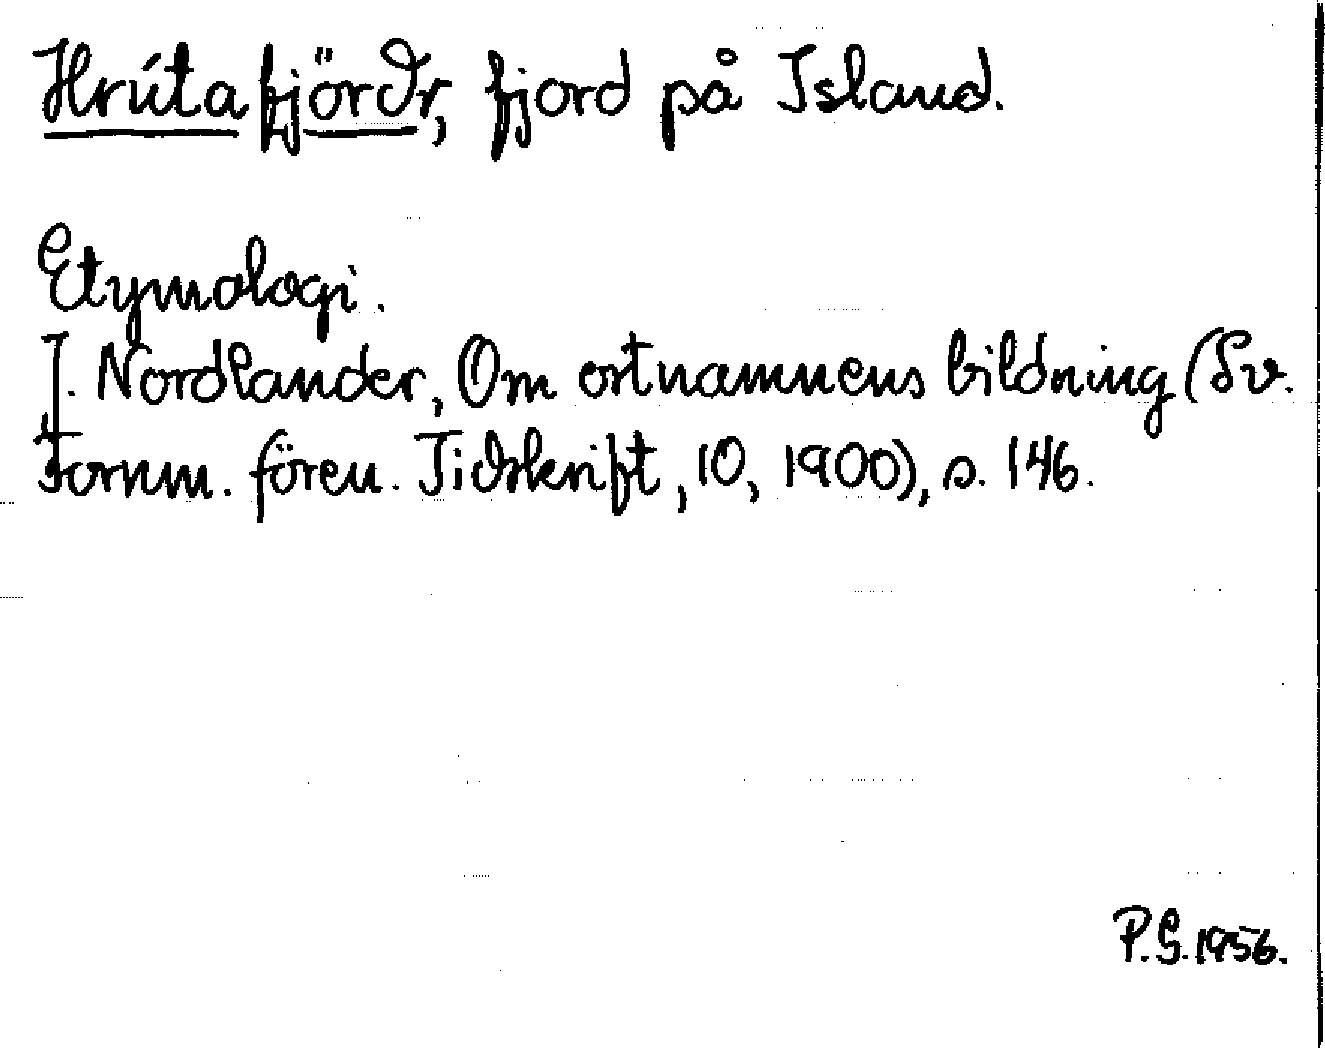 Hrútafjörðr, fjord på Island.
Etymologi.
J. Nordlander, Om ortnamnens bildning (Sv.
Fornm. fören. Tidskrift, 10, 1900), s. 146.
P.G. 1956.